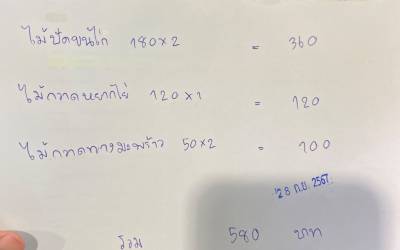 ไม้ปัดขนไก่ 180×2 = 360
ไม้กวาดหยากไย่ 120×1 = 120
ไม้กวาดทางมะพร้าว 50×2 = 100
28 ก.ย. 2567
รวม 580 บาท